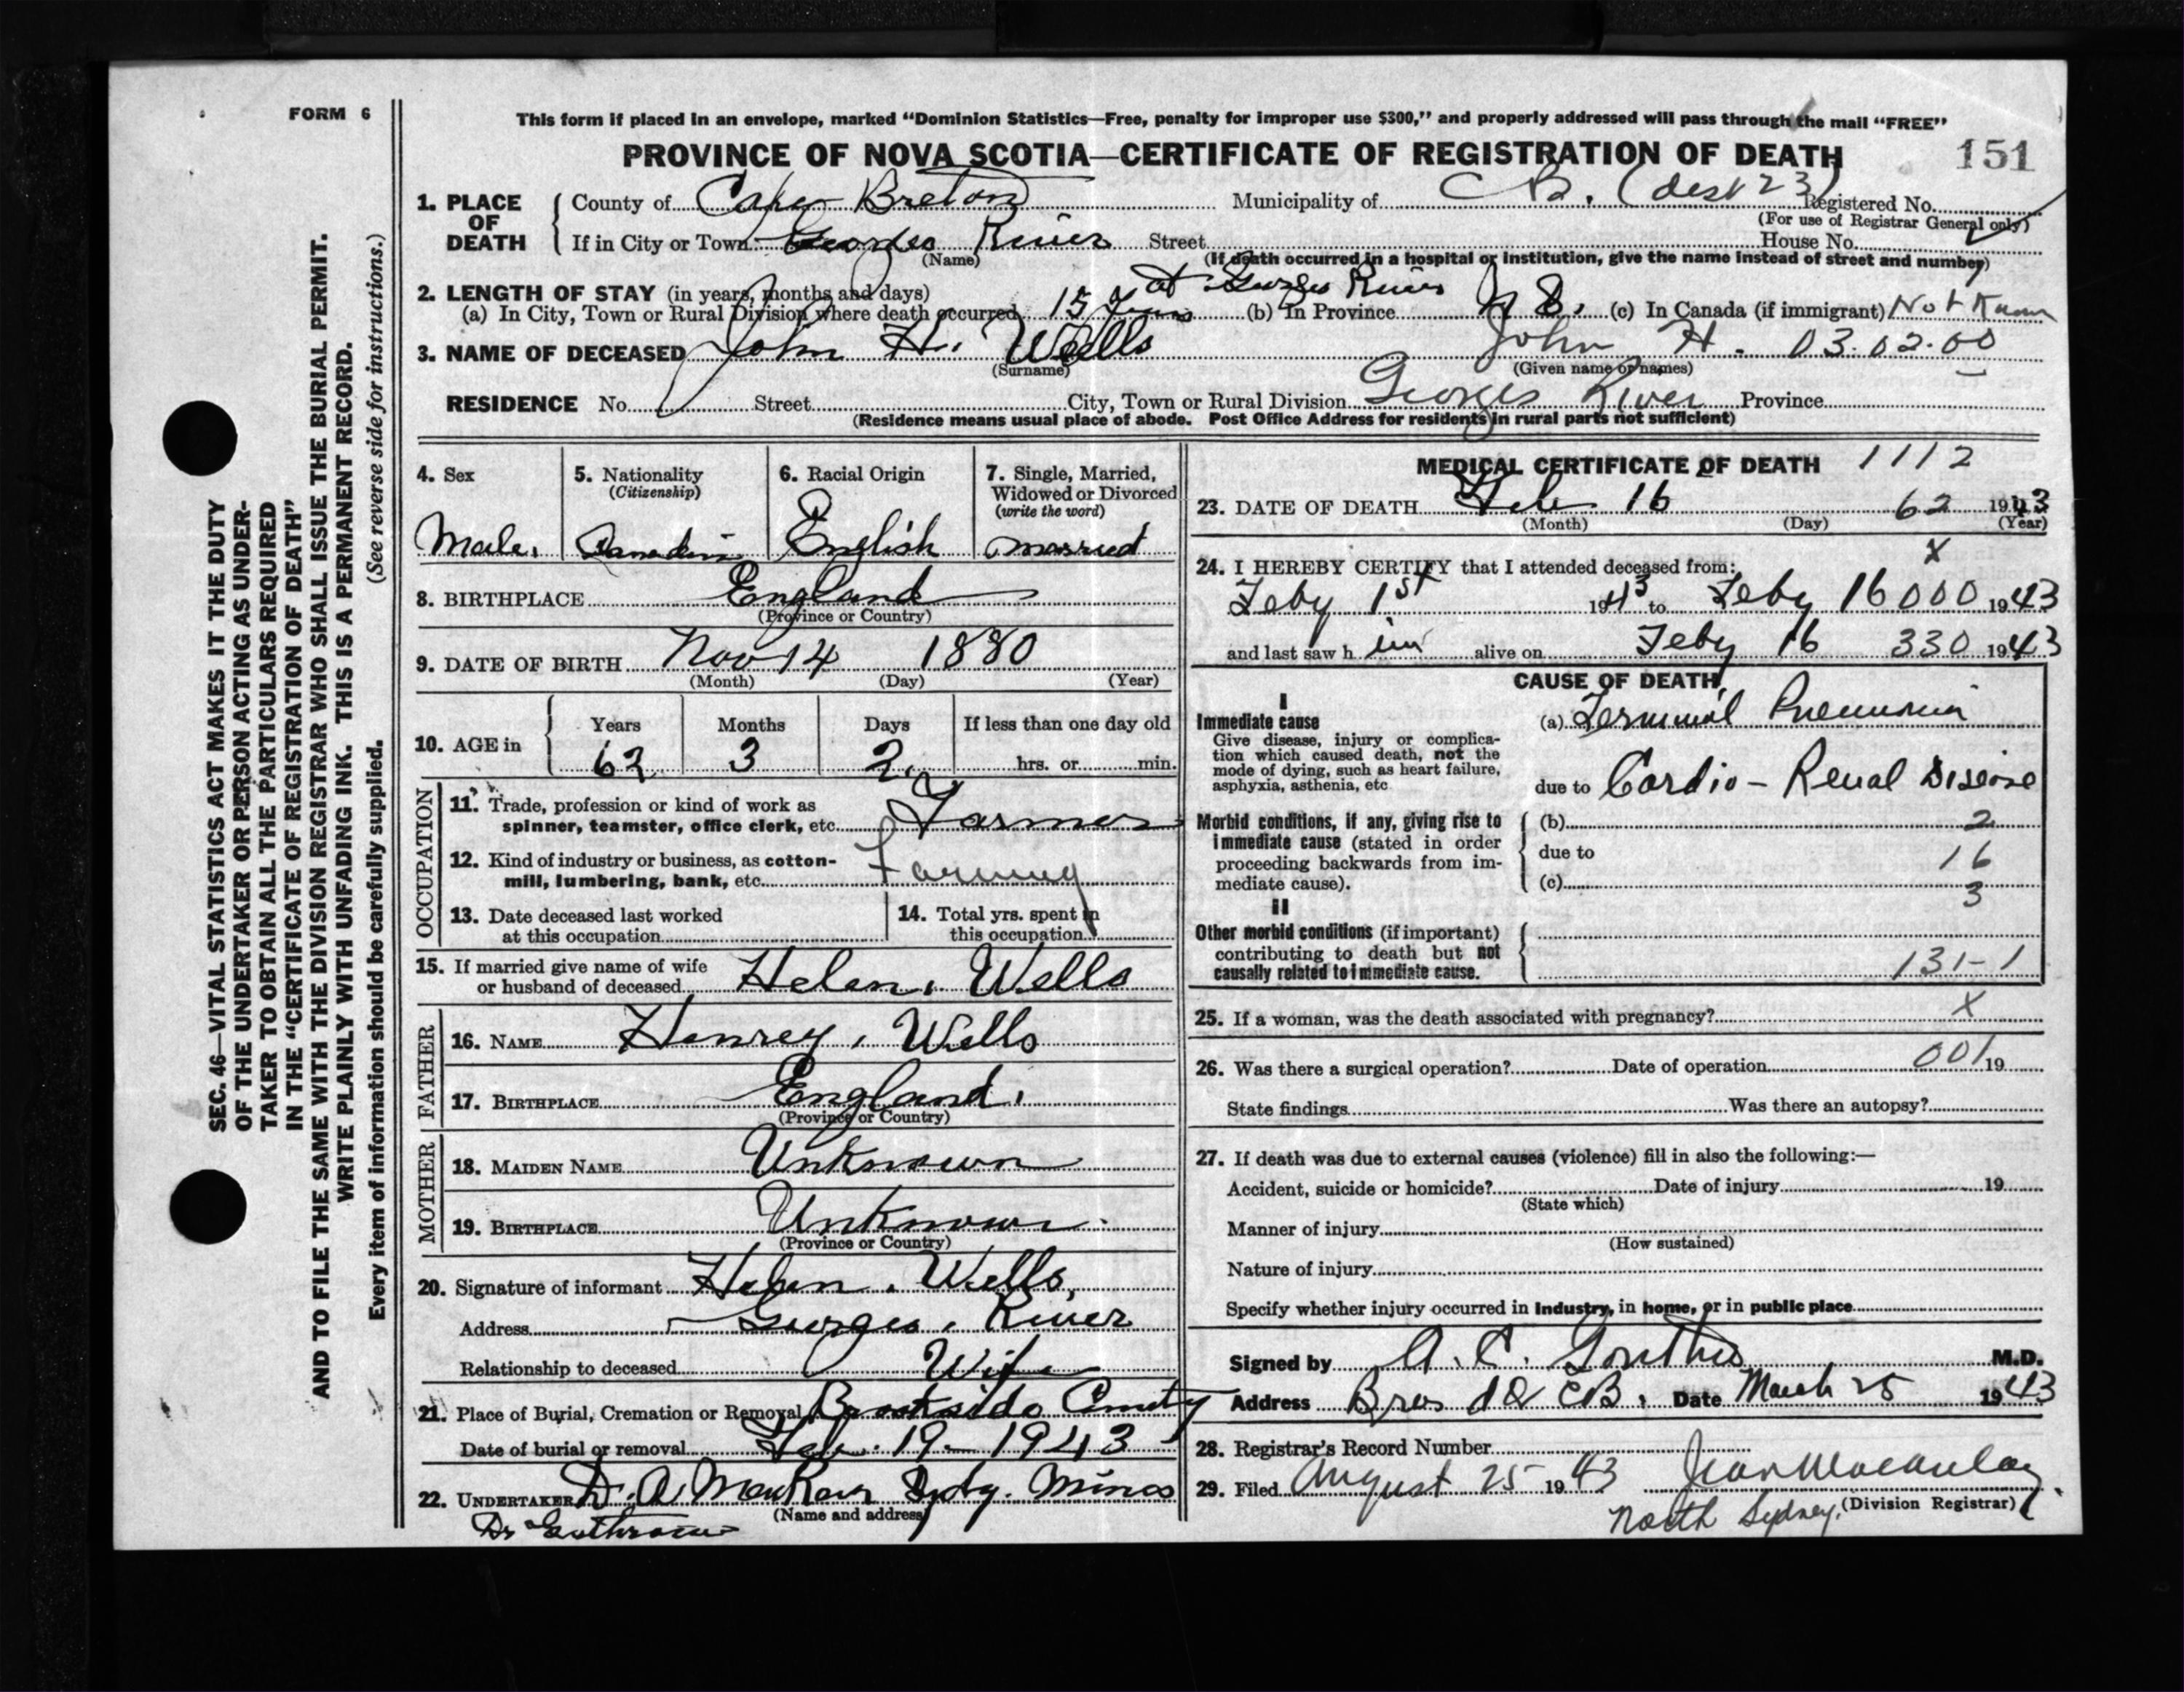 FORM 6
This form if placed in an envelope, marked "Dominion Statistics—Free, penalty for improper use $300," and properly addressed will pass through the mail "FREE"
PROVINCE OF NOVA SCOTIA—CERTIFICATE OF REGISTRATION OF DEATH 151
1. PLACE OF DEATH County of Cape Breton Municipality of C B. (dist 23) Registered No.
(For use of Registrar General only)
If in City or Town Georges River Street House No.
(Name) (If death occurred in a hospital or institution, give the name instead of street and number)
2. LENGTH OF STAY (in years, months and days) at Georges River
(a) In City, Town or Rural Division where death occurred 15 Years (b) In Province (c) In Canada (if immigrant) Not Known
3. NAME OF DECEASED John H. Wells John H. 03.02.00
(Surname) (Given name or names)
RESIDENCE No. Street City, Town or Rural Division Georges River Province
(Residence means usual place of abode. Post Office Address for residents in rural parts not sufficient)
4. Sex
Male.
5. Nationality
(Citizenship)
Canadian
6. Racial Origin
English
7. Single, Married,
Widowed or Divorced
(write the word)
married
8. BIRTHPLACE England
(Province or Country)
9. DATE OF BIRTH Nov 14 1880
(Month) (Day) (Year)
10. AGE in Years Months Days If less than one day old
62 3 2. hrs. or min.
OCCUPATION
11. Trade, profession or kind of work as
spinner, teamster, office clerk, etc. Farmer
12. Kind of industry or business, as cotton-
mill, lumbering, bank, etc. Farming
13. Date deceased last worked
at this occupation
14. Total yrs. spent in
this occupation
15. If married give name of wife
or husband of deceased Helen. Wells
FATHER
16. NAME Henrey. Wells
17. BIRTHPLACE England.
(Province or Country)
MOTHER
18. MAIDEN NAME Unknown
19. BIRTHPLACE Unknown
(Province or Country)
20. Signature of informant Helen. Wells,
Address Georges. River
Relationship to deceased Wife
21. Place of Burial, Cremation or Removal Brookside
Date of burial or removal Feb. 19 - 1943
22. UNDERTAKER D. A. Sydy. Mines
(Name and address)
Dr
MEDICAL CERTIFICATE OF DEATH 1112
23. DATE OF DEATH Feb 16 62 1943
(Month) (Day) (Year)
x
24. I HEREBY CERTIFY that I attended deceased from:
Feby 1st 1943 to Feby 16 000 1943
and last saw h im alive on Feby 16 330 1943
CAUSE OF DEATH
I
Immediate cause
Give disease, injury or complica-
tion which caused death, not the
mode of dying, such as heart failure,
asphyxia, asthenia, etc
(a) Terminal Pneumonia
due to Cardio - Renal Disease
Morbid conditions, if any, giving rise to
immediate cause (stated in order
proceeding backwards from im-
mediate cause).
(b) 2
due to 16
(c) 3
II
Other morbid conditions (if important)
contributing to death but not
causally related to immediate cause.
131-1
25. If a woman, was the death associated with pregnancy? X
26. Was there a surgical operation? Date of operation 001 19
State findings Was there an autopsy?
27. If death was due to external causes (violence) fill in also the following:—
Accident, suicide or homicide? Date of injury 19
(State which)
Manner of injury
(How sustained)
Nature of injury
Specify whether injury occurred in industry, in home, or in public place
Signed by A. C. M.D.
Address Bras d'Or CB. Date March 25 1943
28. Registrar's Record Number
29. Filed August 25 1943 Jean Macaulay
North Sydney. (Division Registrar)
SEC. 46—VITAL STATISTICS ACT MAKES IT THE DUTY
OF THE UNDERTAKER OR PERSON ACTING AS UNDER-
TAKER TO OBTAIN ALL THE PARTICULARS REQUIRED
IN THE "CERTIFICATE OF REGISTRATION OF DEATH"
AND TO FILE THE SAME WITH THE DIVISION REGISTRAR WHO SHALL ISSUE THE BURIAL PERMIT.
WRITE PLAINLY WITH UNFADING INK. THIS IS A PERMANENT RECORD.
Every item of information should be carefully supplied. (See reverse side for instructions.)